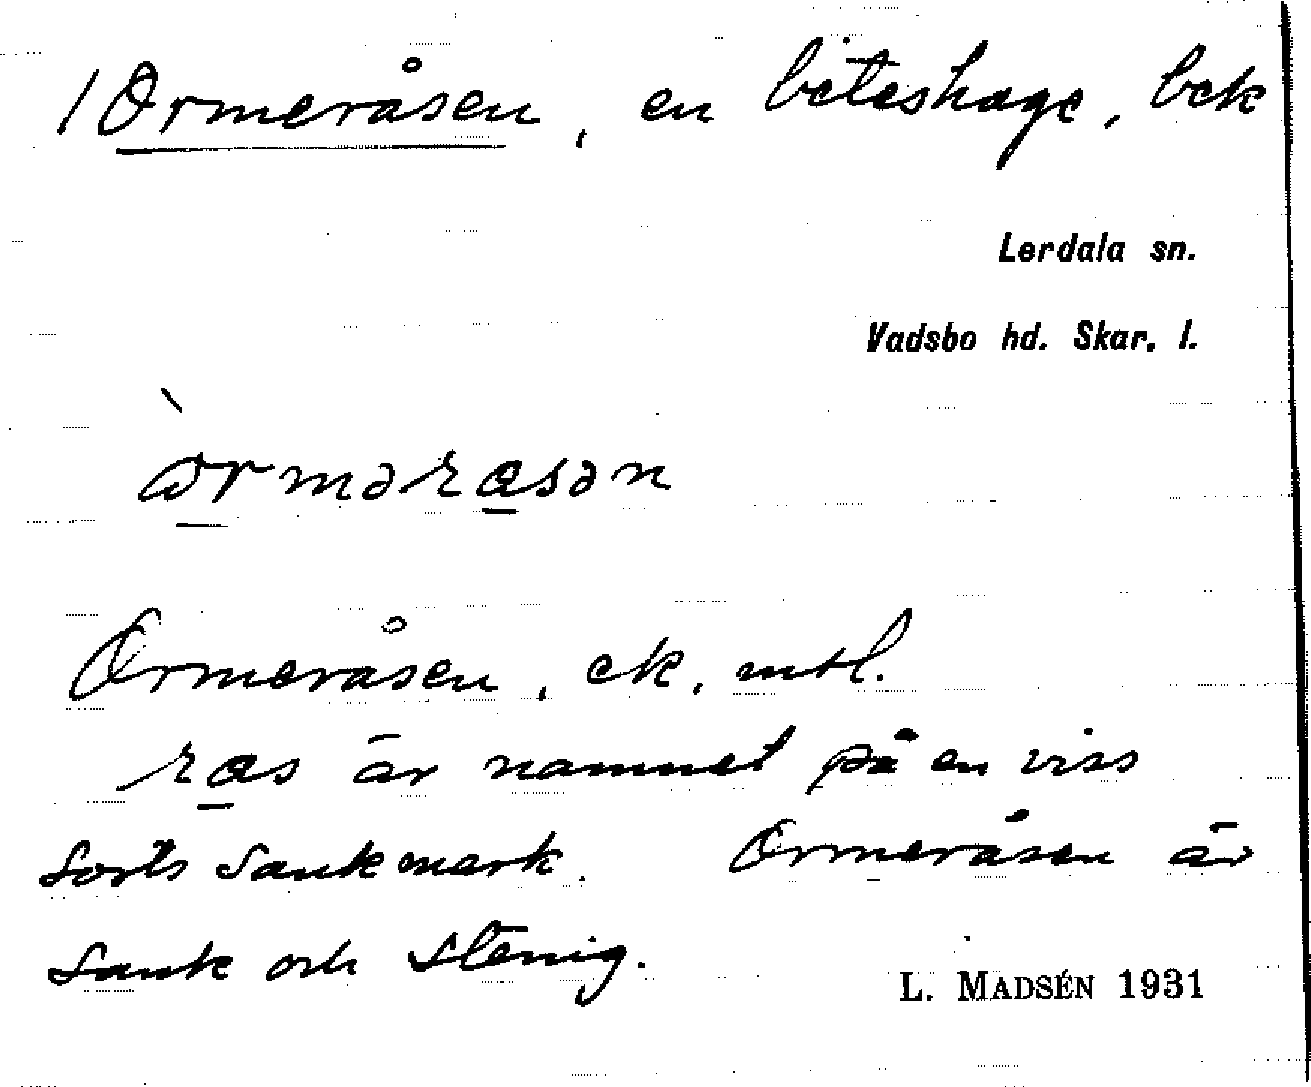 1 Ormeråsen, en beteshage, bek
Lerdala sn.
Vadsbo hd. Skar. l.
òrməræsən
Ormeråsen, ek, mtl.
ræs är namnet på en viss
sorts sankmark. Ormeråsen är
sank och stenig.
L. MADSÉN 1931